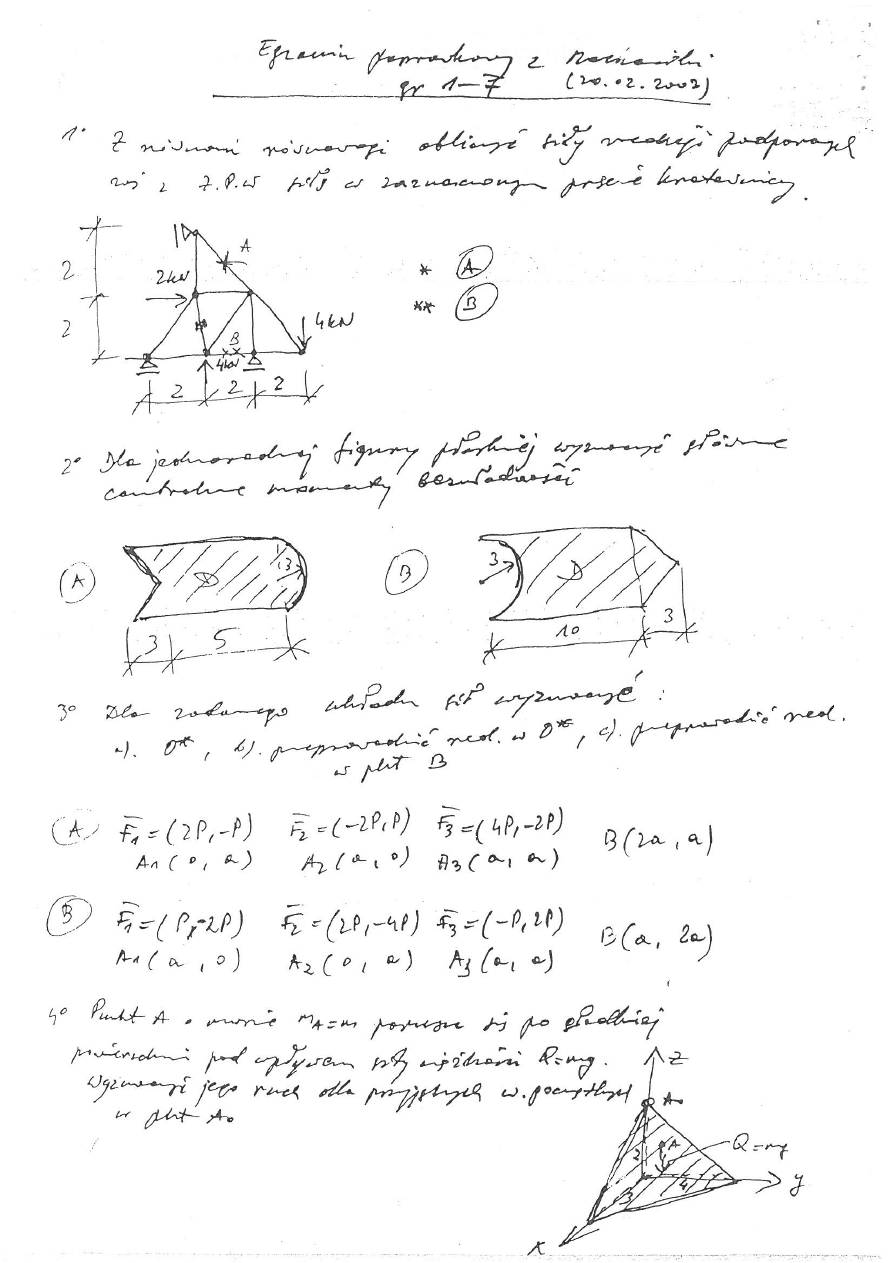 Egzamin poprawkowy z Mechaniki
gr 1-7 (20.02.2002)
1° Z równań równowagi obliczyć siły reakcji podporowych
zaś z Z.P.W siłę w zaznaczonym pręcie kratownicy.
A
2
2kN
2
B
4kN
4kN
2 2 2
* A
** B
2° Dla jednorodnej figury płaskiej wyznaczyć główne
centralne momenty bezwładności
A
3
3 5
B
3
10 3
3° Dla zadanego układu sił wyznaczyć:
a). O*, b). przeprowadzić red. w O*, c). przeprowadzić red.
w pkt B
A F1=(2P,-P) F2=(-2P,P) F3=(4P,-2P) B(2a,a)
A1(0,a) A2(a,0) A3(a,a)
B F1=(P,-2P) F2=(2P,-4P) F3=(-P,2P) B(a,2a)
A1(a,0) A2(0,a) A3(a,a)
4° Punkt A o masie mA=m porusza się po gładkiej
powierzchni pod wpływem siły ciężkości Q=mg.
Wyznaczyć jego ruch dla przyjętych w. początkowych
w pkt A0
z
A0
A
Q=mg
2
3
4
y
x